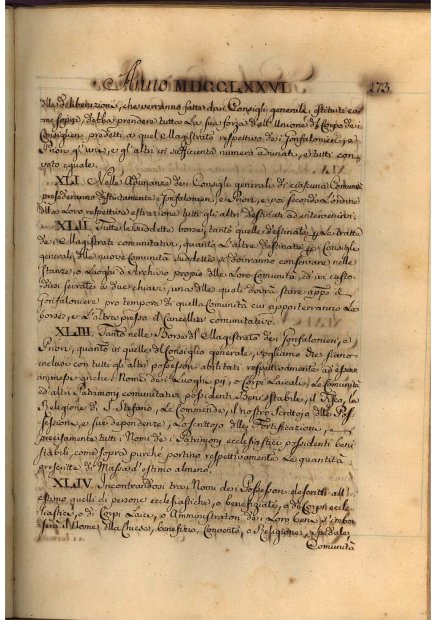 Anno MDCCLXXVI. 173
dlle deliberazioni, che verranno fatte dai Consigli generali, istituiti co=
me sopra, debba prendere tutta La sua forza dall'Unione dl Corpo dei
Consiglieri predetti, a quel Magistrato respettivo dei Gonfalonieri, e
Priori gl'uni, e gl'altri in sufficiente numero adunati, e tutti con
voto eguale.
XLI. Nelle Adunanze dei Consigli generali di ciascuna Comunità
presederanno distintamente i Gonfalonieri, e Priori, e poi secondo L'ordine
dlla Loro respettiva estrazione tutti gl'altri destinati ad intervenirvi.
XLII. Tutte le suddette borse, tanto quelle destinate p Le tratte
dei Magistrati comunitativi, quanto L'altre destinate p i Consigli
generali dlle nuove Comunità suddette si dovranno conservare nelle
Stanze, o Luoghi d'Archivio proprio dlle Loro Comunità, ed ivi custo=
dirsi serrate a due chiavi, una dlle quali dovrà stare appo il
Gonfaloniere pro tempore di quella Comunità cui apparterranno Le
borse, e L'altra presso il Cancellier comunitativo.
XLIII. Tanto nelle Borse dl Magistrato dei Gonfalonieri, e
Priori, quanto in quelle dl Consiglio generale, vogliamo che siano
inclusi con tutti gl'altri possessori abilitati respettivamente ad esservi
ammessi anche i Nomi dei Luoghi pij, o Corpi Laicali, Le Comunità
ed altri Patrimonj comunitativi possidenti Beni stabili, il Fisco, La
Religione di S. Stefano, Le Commende, il nostro Scrittojo dlle Pos=
sessioni, e sue dependenze, Lo scrittojo dlle Fortificazioni, e
precisamente tutti i Nomi de i Patrimonj ecclesiastici possidenti beni
stabili, come sopra purchè portino respettivamente Le quantità
prescritte di Massa d'estimo almeno.
XLIV. Incontrandosi tra i Nomi dei Possessori descritti all'
estimo quelli di persone ecclesiastiche, o beneficiate, o di Corpi eccle=
siastici, o di Corpi Laici, o Amministratori dei Loro beni s'imbor=
serà il Nome dlla Chiesa, beneficio, Convento, o Religione, Spedale,
Comunità